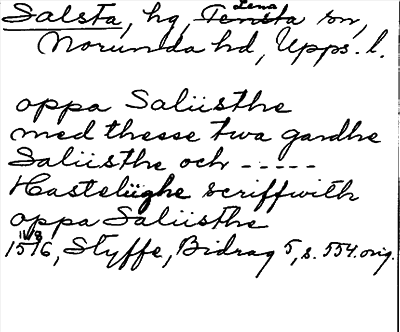 Salsta, hg, Tensta sn, Lena
Norunda hd, Upps. l.
oppa Saliisthe
med thesse twa gardhe
Saliisthe och -----
Hasteliighe scriffwith
oppa Saliisthe
11/8 1516, Styffe, Bidrag 5, s. 554. orig.